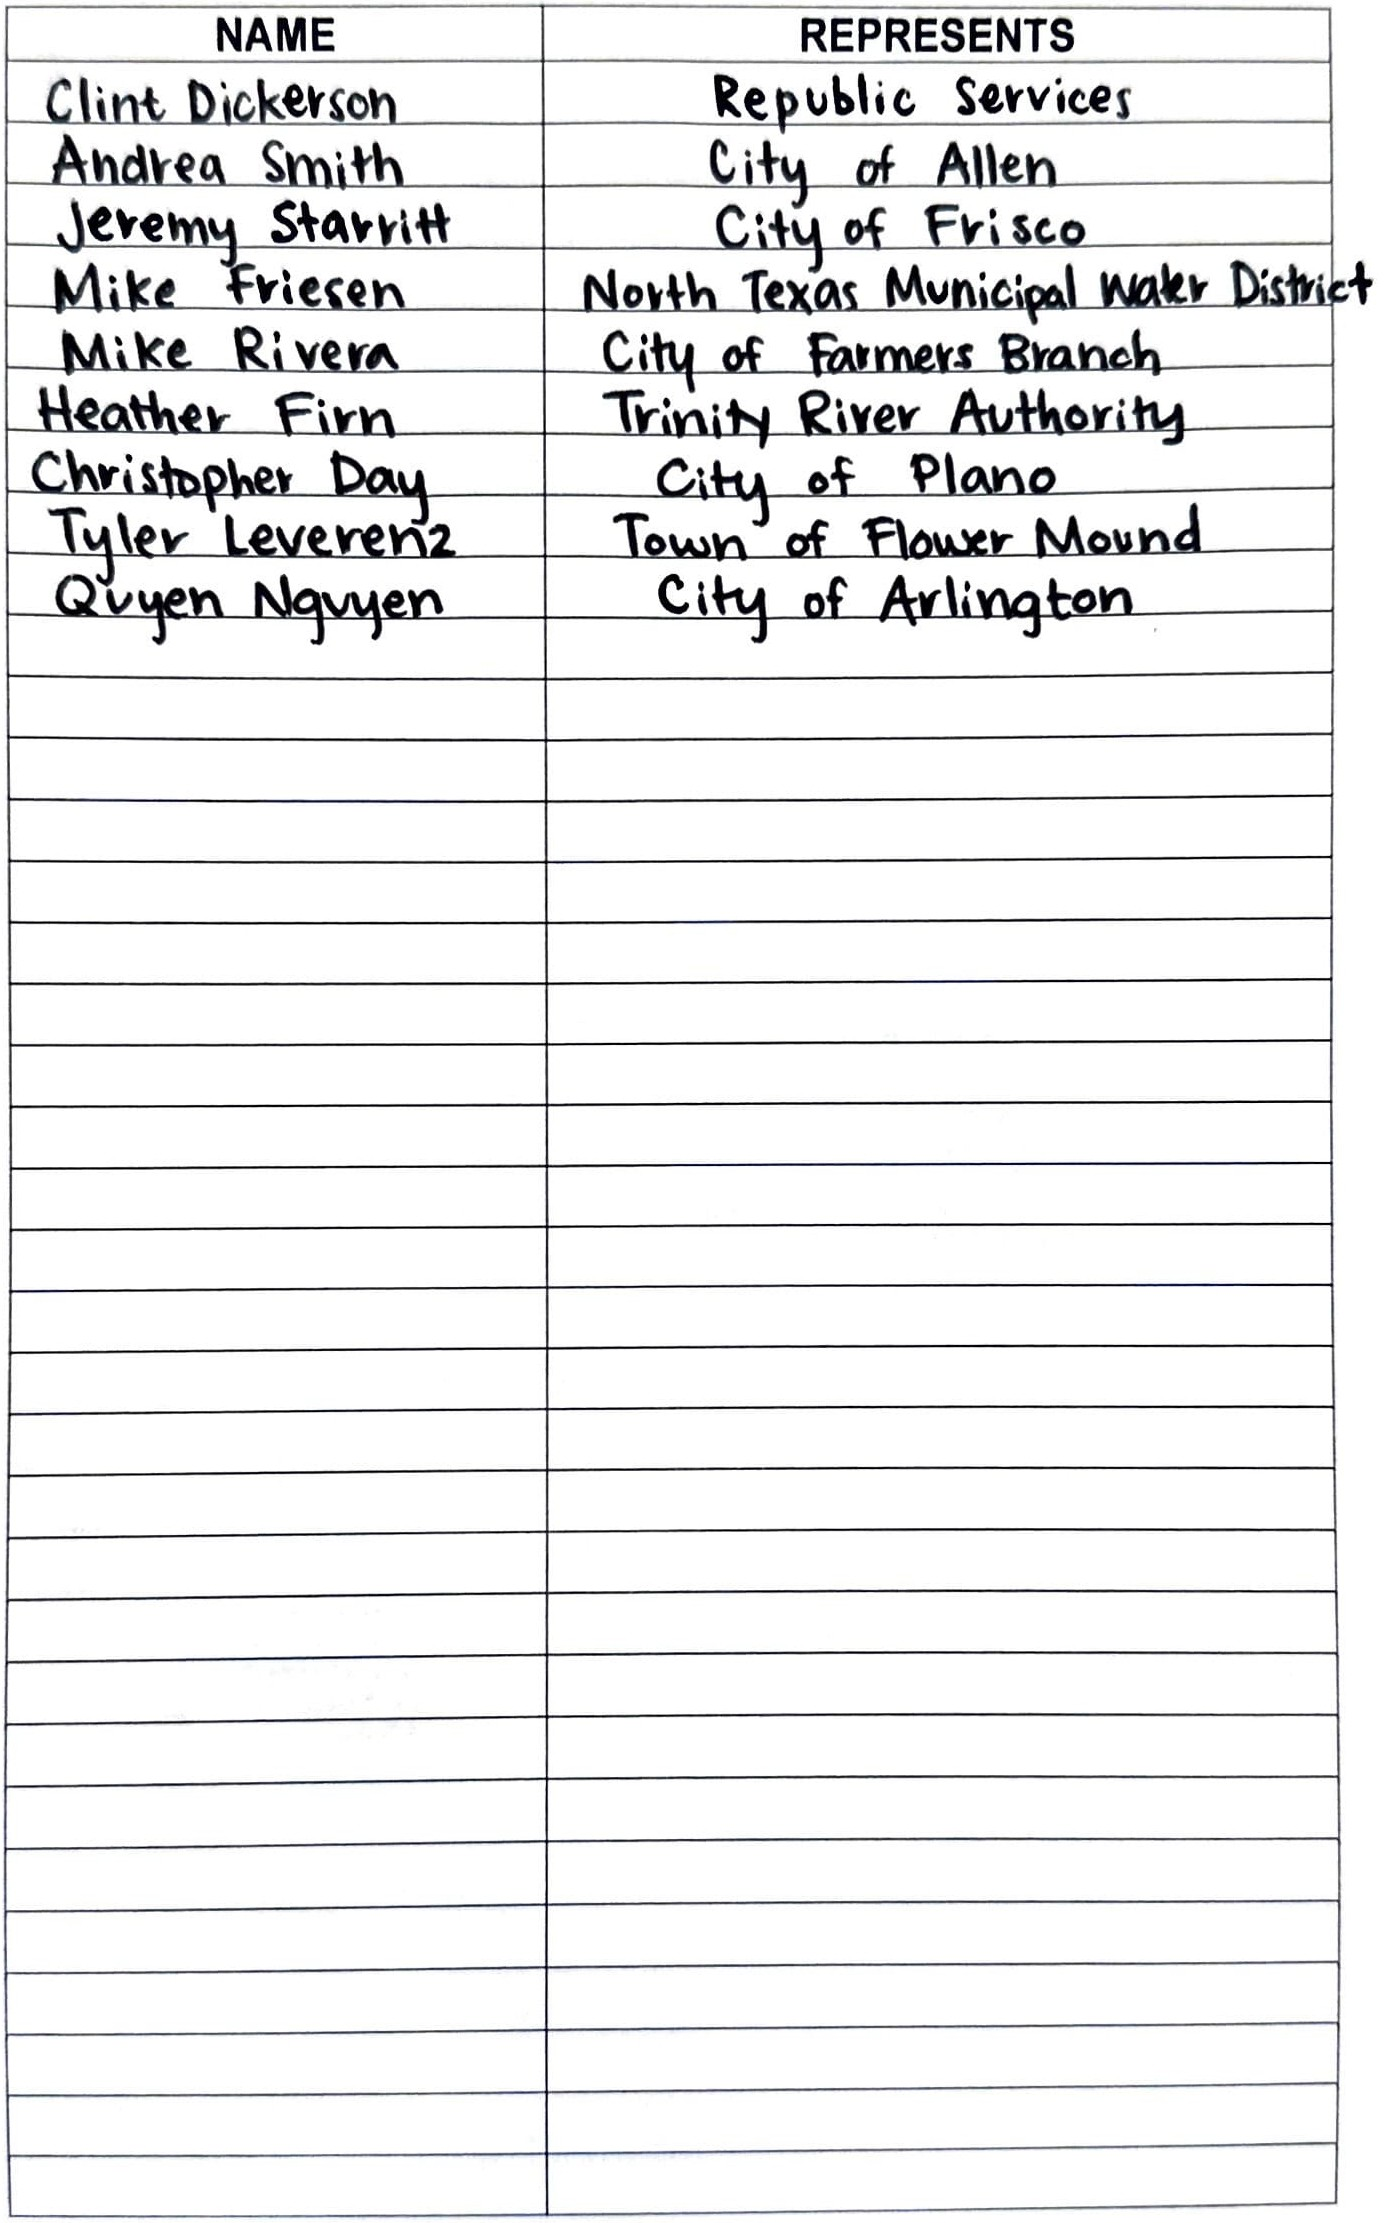 NAME REPRESENTS
Clint Dickerson Republic Services
Andrea Smith City of Allen
Jeremy Starritt City of Frisco
Mike Friesen North Texas Municipal Water District
Mike Rivera City of Farmers Branch
Heather Firn Trinity River Authority
Christopher Day City of Plano
Tyler Leverenz Town of Flower Mound
Quyen Nguyen City of Arlington